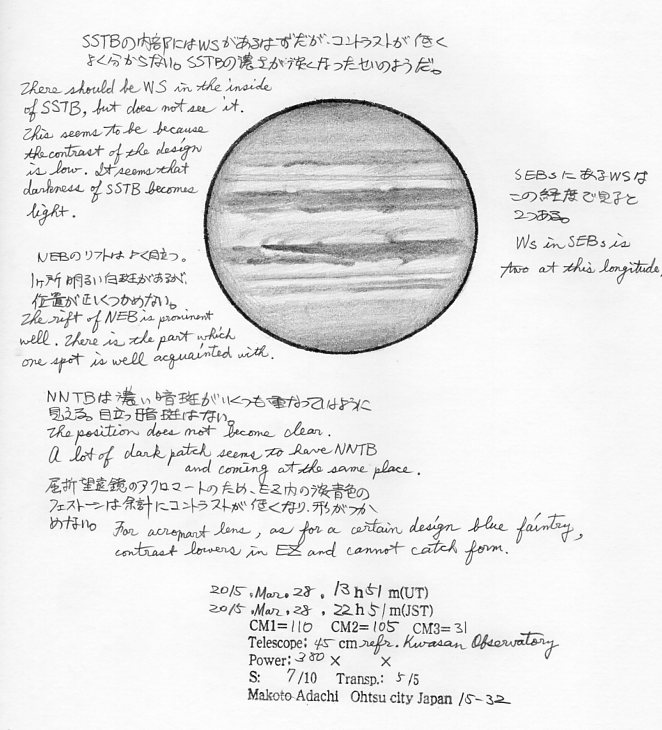 SSTBの内部にはWSがあるはずだが、コントラストが低く
よく分からない。SSTBの濃さが淡くなったせいのようだ。
There should be WS in the inside
of SSTB, but does not see it.
This seems to be because
the contrast of the design
is low. It seems that
darkness of SSTB becomes
light.
SEBsにあるWSは
この経度で見ると
2つある。
Ws in SEBs is
two at this longitude.
NEBのリフトはよく目立つ。
1ヶ所明るい白斑があるが、
位置が正しくつかめない。
The rift of NEB is prominent
well. There is the part which
one spot is well acquainted with.
NNTBは濃い暗斑がいくつも重なっているように
見える。目立つ暗斑はない。
The position does not become clear.
A lot of dark patch seems to have NNTB
and coming at the same place.
屈折望遠鏡のアクロマートのため、EZ内の淡青色の
フェストーンは余計にコントラストが低くなり、形がつか
めない。
For acromart lens, as for a certain design blue faintry,
contrast lowers in EZ and cannot catch form.
2015.Mar.28. 13h51m(UT)
2015.Mar.28. 22h51m(JST)
CM1=110 CM2=105 CM3=31
Telescope: 45 cm refr. Kwasan Observatory
Power: 380 × ×
S: 7/10 Transp.: 5/5
Makoto Adachi Ohtsu city Japan 15-32